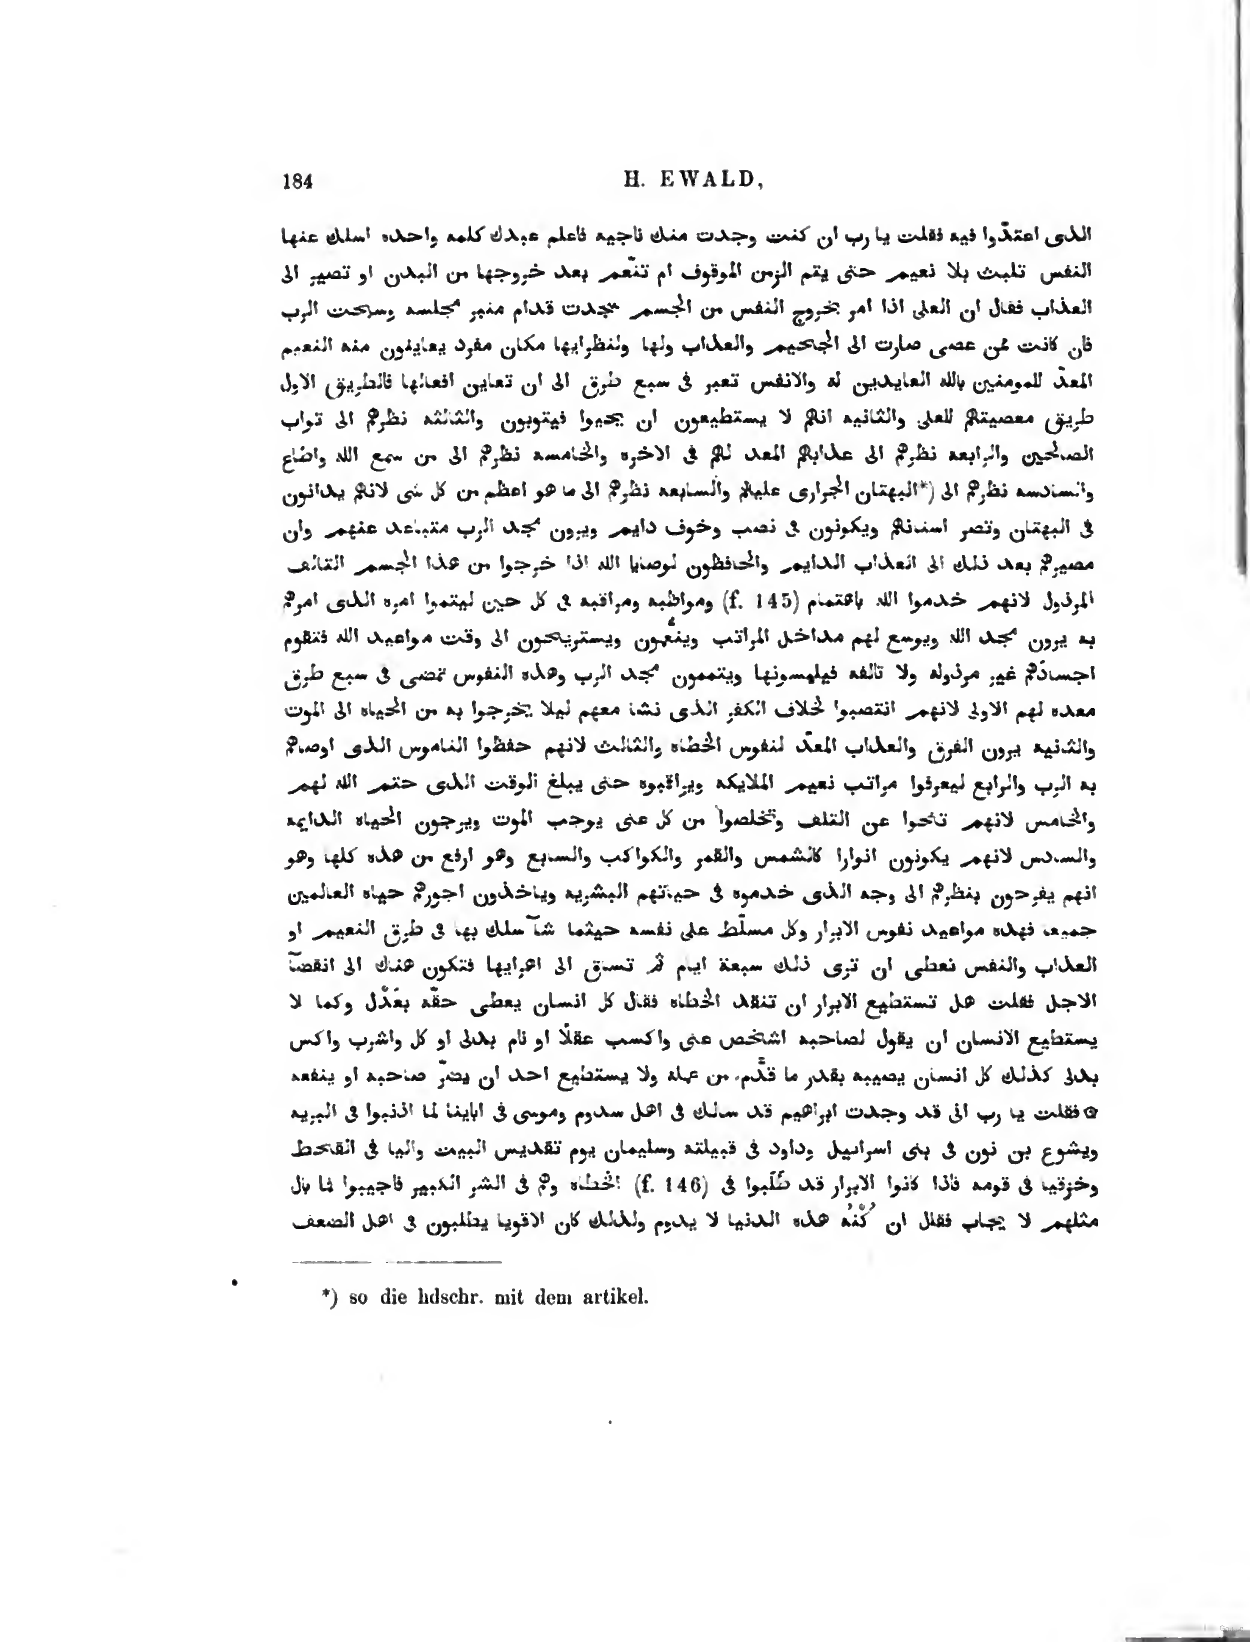 184
H. EWALD,
الذى اعتدّوا فيه فقلت يا رب ان كنت وجدت منك ناجيه فاعلم عبدك كلمه واحده اسلك عنها
النفس تلبث بلا نعيم حتى يتم الزمن الموقوف ام تنّعم بعد خروجها من البدن او تصير الى
العذاب فقال ان العلى اذا امر بخروج النفس من الجسم سجدت قدام منبر مجلسه وسبحت الرب
فان كانت ممن عصى صارت الى الجحيم والعذاب ولها ولنظرايها مكان مفرد يعاينون منه النعيم
المعدّ للمومنين بالله العابدين له والانفس تعبر فى سبع طرق الى ان تعاين افعالها فالطريق الاول
طريق معصيتهم للعلى والثانيه انهم لا يستطيعون ان يحيوا فيتوبون والثالثه نظرهم الى ثواب
الصالحين والرابعه نظرهم الى عذابهم المعد لهم فى الاخره والخامسه نظرهم الى من سمع الله واطاع
والسادسه نظرهم الى (*البهتان الجرارى عليهم والسابعه نظرهم الى ما هو اعظم من كل شى لانهم يدانون
فى البهتان وتصر اسنانهم ويكونون فى نصب وخوف دايم ويرون مجد الرب متباعد عنهم وان
مصيرهم بعد ذلك الى العذاب الدايم والحافظون لوصايا الله اذا خرجوا من هذا الجسم التالف
المرذول لانهم خدموا الله باهتمام (f. 145) ومواظبه ومراقبه فى كل حين ليتموا امره الذى امرهم
به يرون مجد الله ويوسع لهم مداخل المراتب وينعُمون ويستريحون الى وقت مواعيد الله فتقوم
اجسادهم غير مرذوله ولا تالفه فيلبسونها ويتممون مجد الرب وهذه النفوس تمضى فى سبع طرق
معده لهم الاولى لانهم انتصبوا لخلاف الكفر الذى نشا معهم ليلا يخرجوا به من الحياه الى الموت
والثانيه يرون الفرق والعذاب المعدّ لنفوس الخطاه والثالث لانهم حفظوا الناموس الذى اوصاهم
به الرب والرابع ليعرفوا مراتب نعيم الملايكه ويراقبوه حتى يبلغ الوقت الذى حتم الله لهم
والخامس لانهم تنحوا عن التلف وتخلصوا من كل عى يوجب الموت ويرجون الحياه الدايمه
والسادس لانهم يكونون انوارا كالشمس والقمر والكواكب والسابع وهو ارفع من هذه كلها وهو
انهم يفرحون بنظرهم الى وجه الذى خدموه فى حياتهم البشريه وياخذون اجورهم حياه العالمين
جميعا فهذه مواعيد نفوس الابرار وكل مسلّط على نفسه حيثما شآ سلك بها فى طرق النعيم او
العذاب والنفس تعطى ان ترى ذلك سبعة ايام ثم تساق الى اهرايها فتكون هناك الى انقضآ
الاجل فقلت هل تستطيع الابرار ان تنقذ الخطاه فقال كل انسان يعطى حقّه بعَدْل وكما لا
يستطيع الانسان ان يقول لصاحبه اشخص عنى واكسب عقلًا او نام بدلى او كل واشرب واكس
بدلى كذلك كل انسان يصيبه بقدر ما قدّم من عمله ولا يستطيع احد ان يضرّ صاحبه او ينفعه
۞ فقلت يا رب انى قد وجدت ابراهيم قد سالك فى اهل سدوم وموسى فى ابائنا لما اذنبوا فى البريه
ويشوع بن نون فى بنى اسراييل وداود فى قبيلته وسليمان يوم تقديس البيت واليا فى القحط
وحزقيا فى قومه فاذا كانوا الابرار قد طَلَبوا فى (f. 146) الخطاه وهم فى الشر الكبير فاجيبوا فما بال
مثلهم لا يجاب فقال ان كُنْهُ هذه الدنيا لا يدوم ولذلك كان الاقويا يطلبون فى اهل الضعف
*) so die hdschr. mit dem artikel.